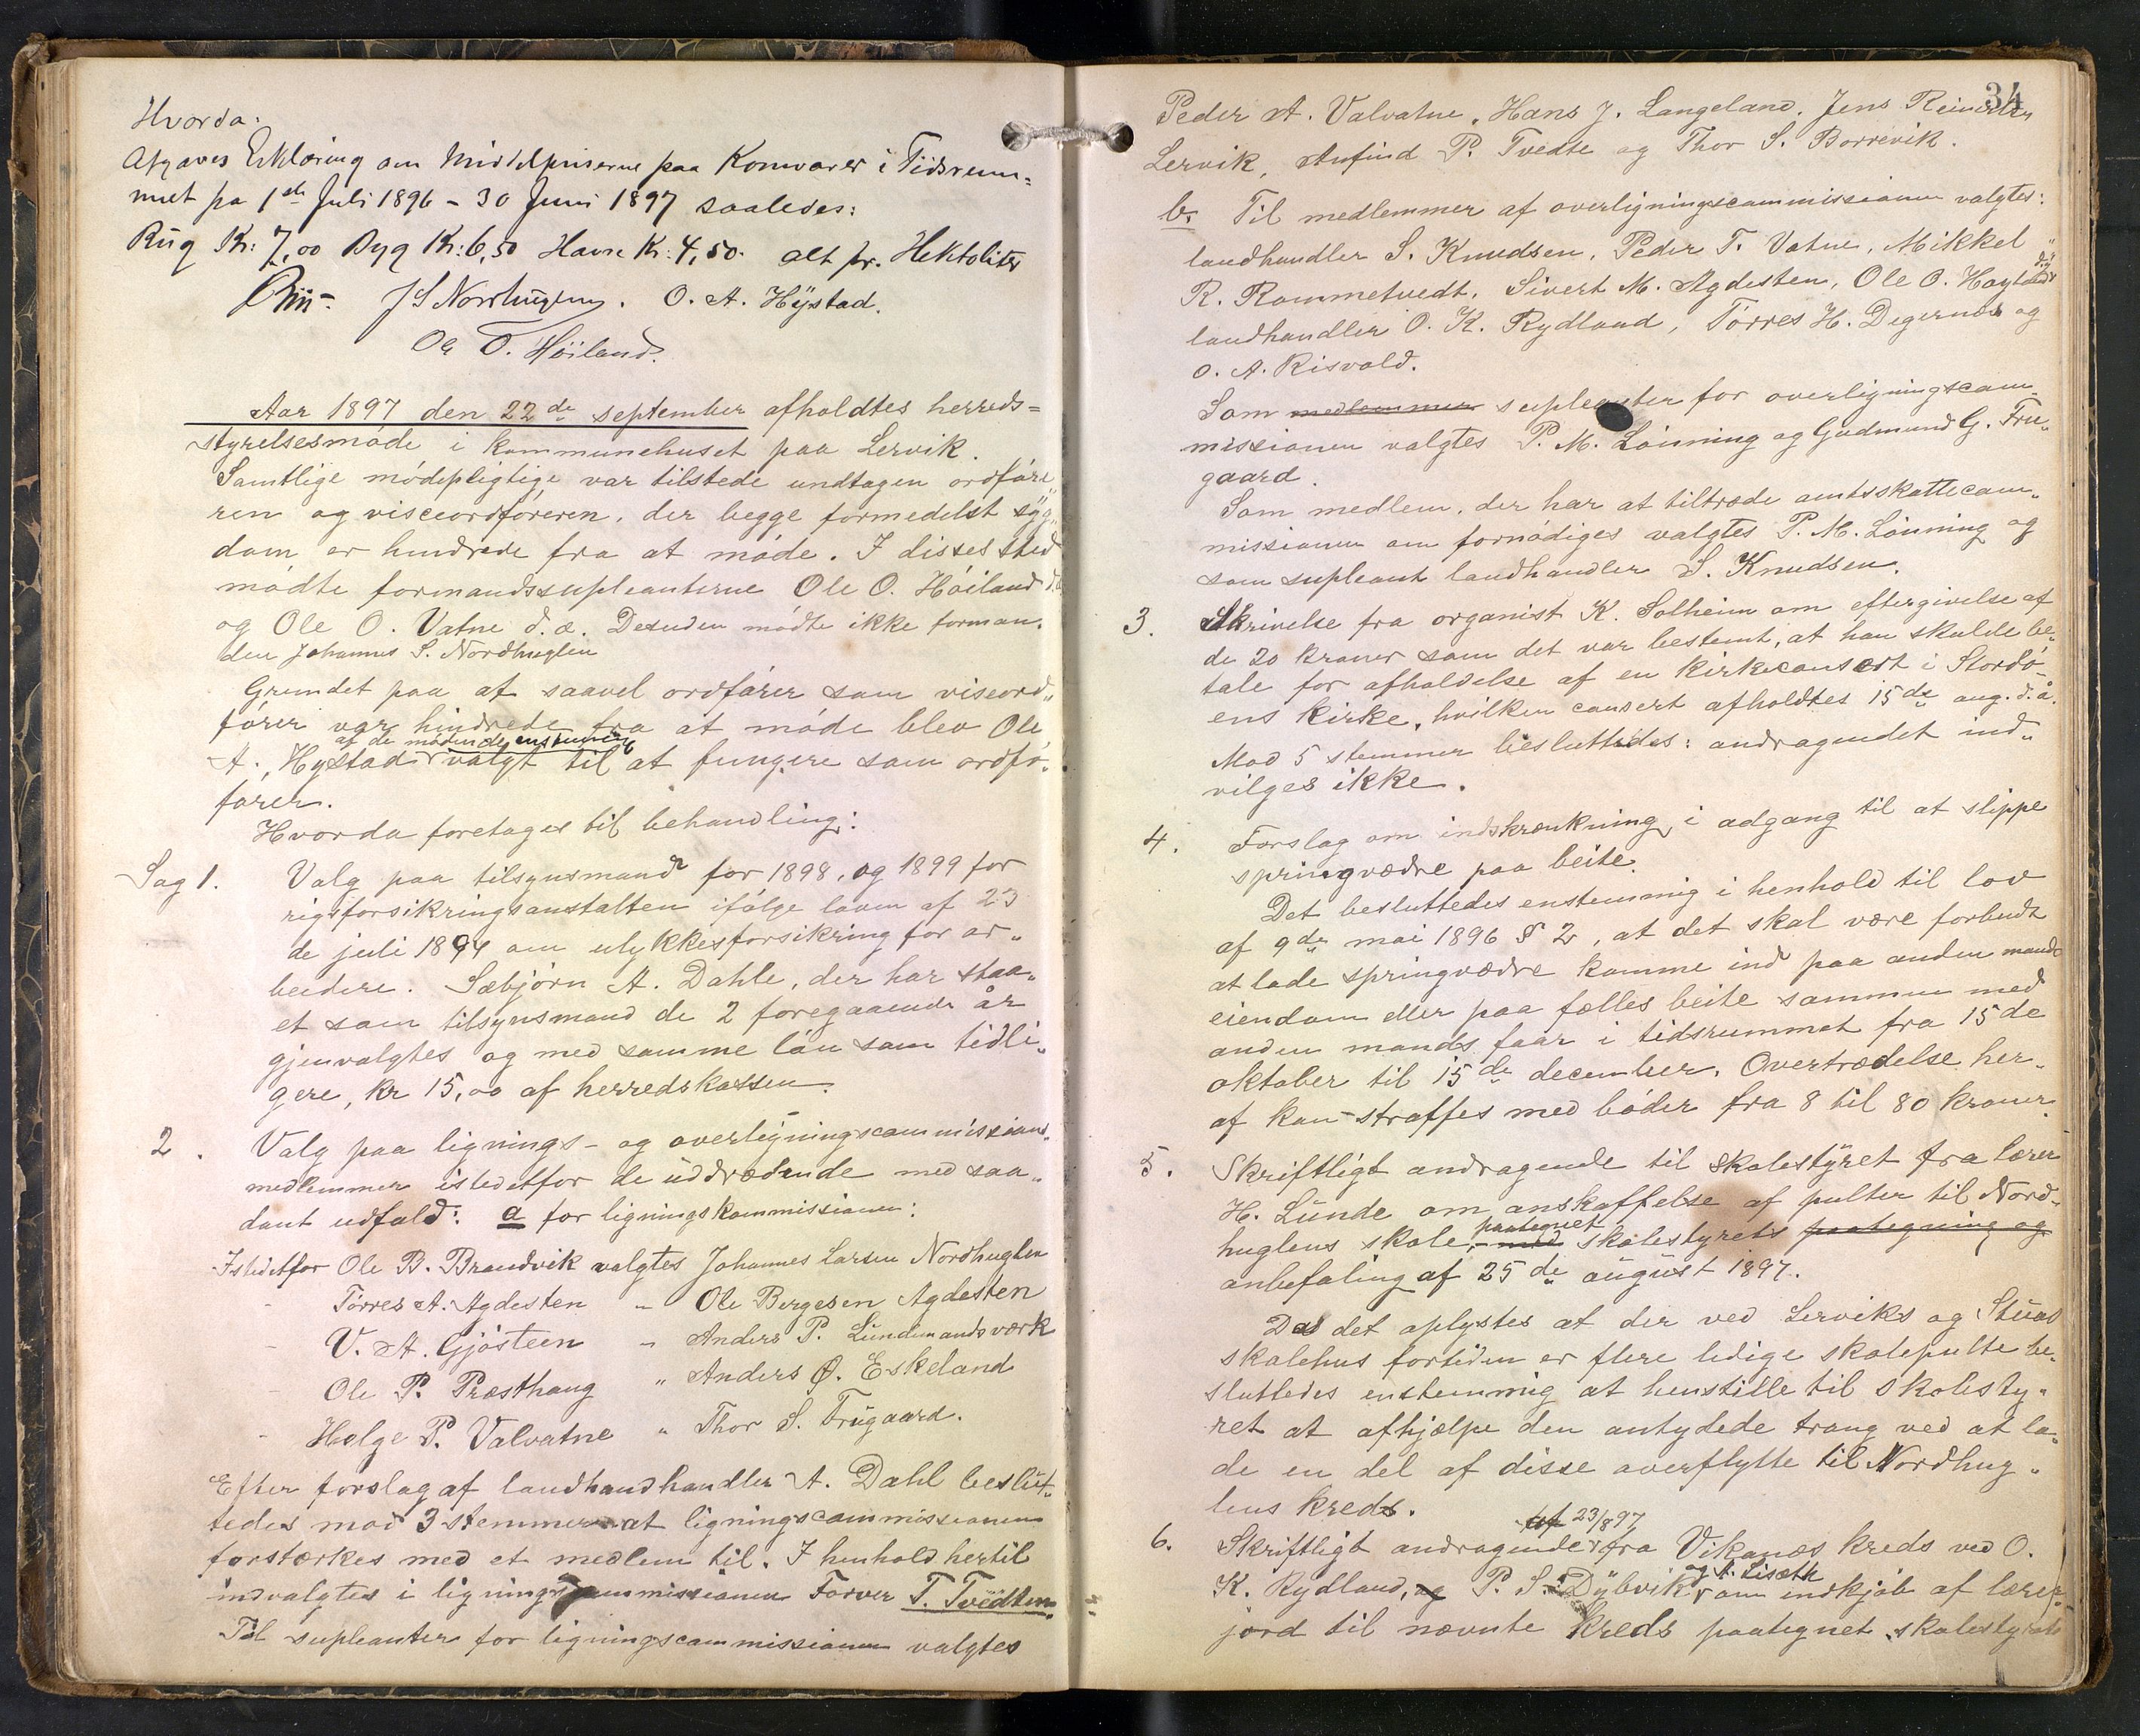 Hvorda:
Afgaves Erklæring om Middelpriserne paa Kornvarer i Tidsrum=
met fra 1ste Juli 1896 - 30 Juni 1897 saaledes:
Rug Kr: 7,00 Byg Kr: 6,50 Havre Kr: 4,50. alt pr. Hektoliter
J S Nordhuglen. O. A. Hystad.
Ole O. Höiland.
Aar 1897 den 22de september afholdtes herreds=
styrelsesmöde i kommunehuset paa Lervik.
Samtlige mödepligtige var tilstede undtagen ordföre„
ren og visceordföreren, der begge formedelst syg„
dom er hindrede fra at möde. I disses sted
mödte formandssupleanterne Ole O. Höiland d.
og Ole O. Vatne d.æ. Desuden mödte ikke forman„
den Johannes S. Nordhuglen
Grundet paa at saavel ordförer som viseord„
förer var hindrede fra at möde blev Ole
af de mödende enstemmig
A. Hystad valgt til at fungere som ordfö„
förer.
Hvorda foretages til behandling:
Sag 1. Valg paa tilsynsmand for 1898, og 1899 for
rigsforsikringsanstalten ifölge loven af 23
de juli 1894 om ulykkesforsikring for ar„
beidere. Sæbjörn A. Dahle, der har staa„
et som tilsynsmand de 2 foregaaende år
gjenvalgtes og med samme lön som tidli„
gere, kr 15,00 af herredskassen.
2. Valg paa lignings- og overligningscommissions„
medlemmer istedetfor de uddrædende med saa„
dant udfald: a for ligningskommissionen:
Istedetfor Ole B. Brandvik valgtes Johannes Larsen Nordhuglen
- Törres A. Agdesten „ Ole Bergesen Agdesten
- V. A. Gjösteen „ Anders P. Lundemandsværk
- Ole P. Præsthaug „ Anders Ø. Eskeland
- Helge P. Valvatne „ Thor S. Frugaard.
Efter forslag af landhandhandler A. Dahl beslut„
tedes mod 3 stemmer at ligningscommissionen
forstærkes med et medlem til. I henhold hertil
indvalgtes i ligningscommissionen Farver T. Tvedten.
Til supleanter for ligningscommissionen valgtes
34
Peder A. Valvatne, Hans J. Langeland, Jens Reinertsen
Lervik, Anfind P. Tvedte og Thor S. Borrevik.
b. Til medlemmer af overligningscommissionen valgtes:
landhandler S. Knudsen, Peder T. Vatne, Mikkel
R. Rommetvedt, Sivert M. Agdesten, Ole O. Hoyland d.y.
landhandler O. K. Rydland, Törres H. Degernes og
O. A. Risvold.
Som medlemmer supleanter for overligningscom„
missionen valgtes P. M. Lönning og Gudmund G. Fru„
gaard.
Som medlem, der har at tiltræde amtsskattecom„
missionen om fornödiges valgtes P. M. Lönning og
som supleant landhandler S. Knudsen.
3. Skrivelse fra organist K. Solheim om eftergivelse af
de 20 kroner som det var bestemt, at han skulde be„
tale for afholdelse af en kirkeconsert i Stordö-
ens kirke, hvilken consert afholdtes 15de aug. d.å.
Mod 5 stemmer besluttedes: andragendet ind„
vilges ikke.
4. Forslag om indskrænkning i adgang til at slippe
springvædre paa beite.
Det besluttedes enstemmig i henhold til lov
af 9de mai 1896 § 2, at det skal være forbudt
at lade springvædre komme ind paa anden mands
eiendom eller paa fælles beite sammen med
anden mands faar i tidsrummet fra 15de
oktober til 15de december. Overtrædelse her„
af kan straffes med böder fra 8 til 80 kroner.
5. Skriftligt andragende til skolestyret fra lærer
H. Lunde om anskaffelse af pulter til Nord-
huglens skole, med paategnet skolestyrets paategning og
anbefaling af 25de august 1897.
Da det oplystes at der ved Lerviks og Stuvs
skolehus fortiden er flere ledige skolepulte be„
sluttedes enstemmig at henstille til skolesty„
ret at afhjælpe den antydede trang ved at la„
de en del af disse overflytte til Nordhug„
lens kreds.
af 23/8 97
6. Skriftligt andragende fra Vikanæs kreds ved O.
K. Rydland, og P. S. Dybvik og A. Lisæth om indkjöb af lærer„
jord til nævnte kreds paategnet skolestyrets